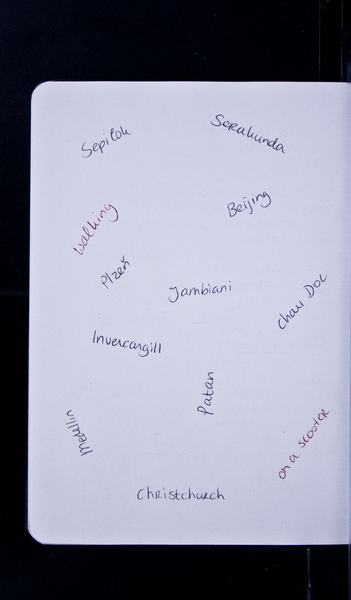 Sepilok
Serakunda
walking
Beijing
Plzeň
Jambiani
Chau Doc
Invercargill
Patan
Medellin
on a scooter
Christchurch